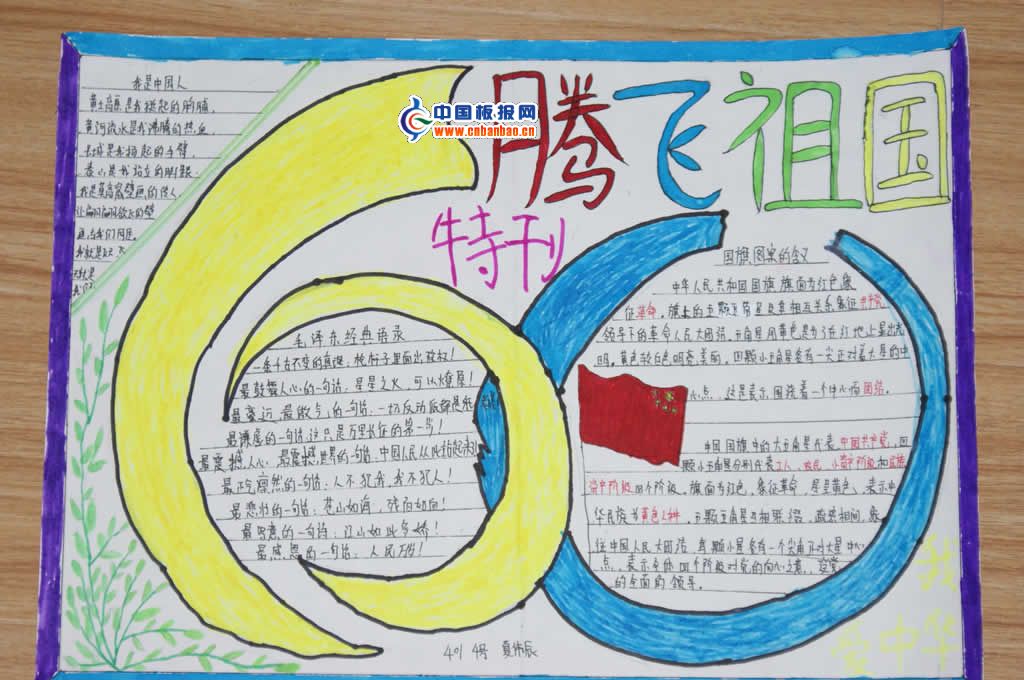 腾飞祖国
特刊
中国板报网
www.cnbanbao.cn
我是中国人
黄土高原是我挺起的胸脯，
黄河流水是我沸腾的热血，
长城是我扬起的手臂，
泰山是我站立的脚跟。
我是莫高窟壁画的传人，
让翩翩欲飞的壁
画与我们同住。
我就是
就是
毛泽东经典语录
一条千古不变的真理：枪杆子里面出政权！
最鼓舞人心的一句话：星星之火，可以燎原！
最豪远、最傲气的一句话：一切反动派都是纸老虎
最谦虚的一句话：这只是万里长征的第一步！
最震撼人心、最震撼世界的一句话：中国人民从此站起来了
最正气凛然的一句话：人不犯我，我不犯人！
最悲壮的一句话：苍山如海，残阳如血！
最得意的一句话：江山如此多娇！
最感恩的一句话：人民万岁！
国旗图案的含义
中华人民共和国国旗旗面为红色，象
征革命，旗上的五颗五角星及其相互关系象征共产党
领导下的革命人民大团结，五角星用黄色是为了在红地上显出光
明，黄色较白色明亮美丽，四颗小五角星各有一尖正对着大星的中
心点，这是表示围绕着一个中心而团结。
中国国旗中的大五角星代表中国共产党，四
颗小五角星分别代表工人、农民、小资产阶级和民族
资产阶级四个阶级。旗面为红色，象征革命，星呈黄色，表示中
华民族为黄色人种，五颗五角星互相联缀、疏密相间，象
征中国人民大团结，每颗小星各有一个尖角正对大星中心
点，表示全体四个阶级对党的向心之意，
的全面的领导。
我
爱中华
401 4号 夏伟辰